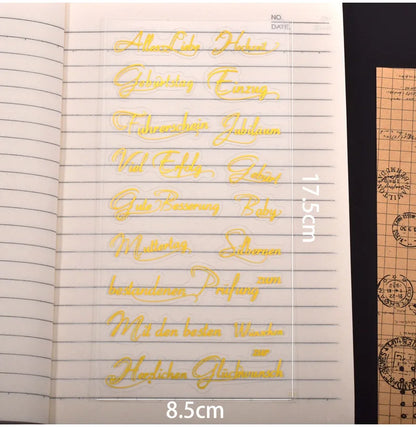 NO.
DATE.
Alles Liebe Hochzeit
Geburtstag Einzug
Führerschein Jubiläum
Viel Erfolg Geburt
Gute Besserung Baby
Muttertag Silbernen
zum
bestandenen Prüfung
Mit den besten Wünschen
zur
Herzlichen Glückwunsch
17.5cm
8.5cm